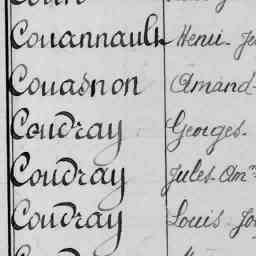 Couannault Henri
Couasnon Amand
Coudray Georges
Coudray Jules
Coudray Louis